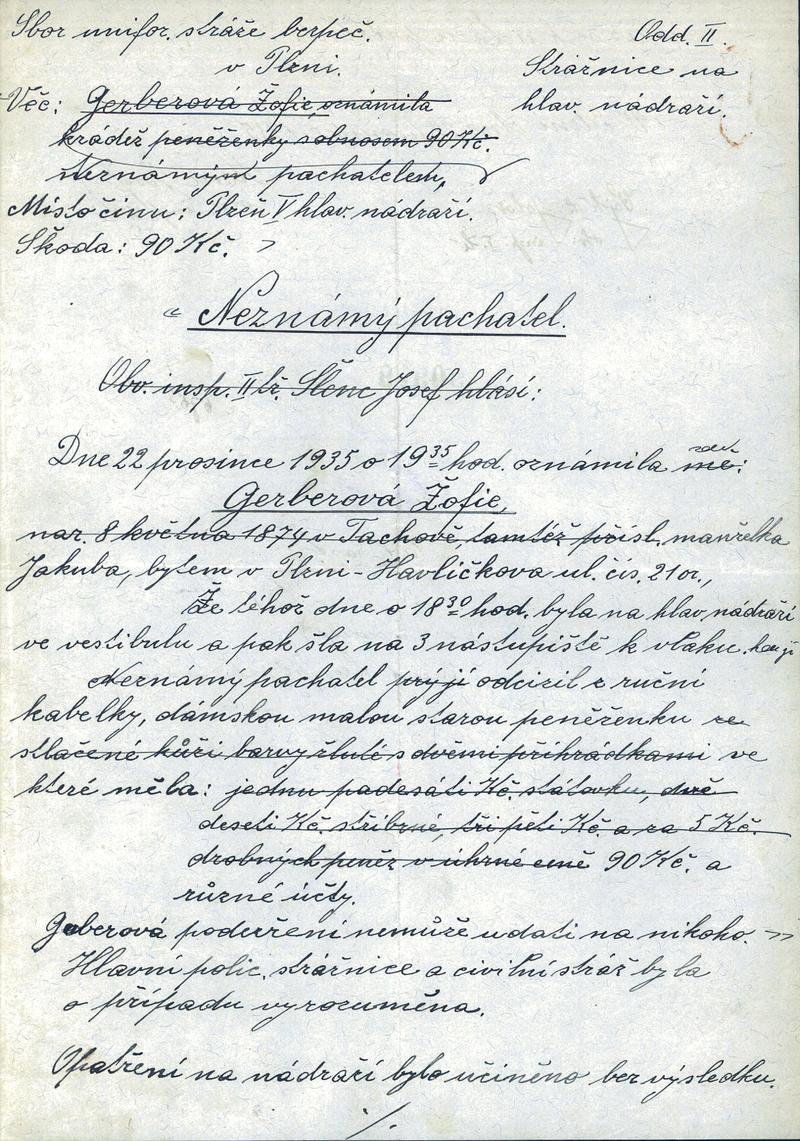 Sbor unifor. stráže bezpeč. Odd. II.
v Plzni. Strážnice na
Věc: Gerberová Žofie, oznámila hlav. nádraží.
krádež peněženky s obnosem 90 Kč.
neznámým pachatelem,
Místo činu: Plzeň V hlav. nádraží.
Škoda: 90 Kč.
Neznámý pachatel.
Obv. insp. II tř. Šlenc Josef hlásí:
Dne 22 prosince 1935 o 19 35 hod. oznámila zde mě:
Gerberová Žofie,
nar. 8 května 1874 v Tachově, tamtéž přísl. manželka
Jakuba, bytem v Plzni - Havlíčkova ul. čís. 21 or.,
Že téhož dne o 18 30 hod. byla na hlav. nádraží
ve vestibulu a pak šla na 3 nástupiště k vlaku.
Neznámý pachatel prý jí odcizil z ruční
kabelky, dámskou malou starou peněženku ze
stlačené kůži barvy žluté s dvěmi přihrádkami ve
které měla: jednu padesáti Kč. státovku, dvě
deseti Kč. stříbrné, tři pěti Kč. a za 5 Kč.
drobných peněz v úhrné ceně 90 Kč. a
různé účty.
Gerberová podezření nemůže udati na nikoho.
Hlavní polic. strážnice a civilní stráž byla
o případu vyrozuměna.
Opatření na nádraží bylo učiněno bez výsledku.
./.